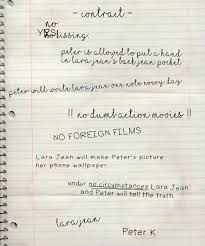 - contract -
no
YES!
no kissing
peter is allowed to put a hand
in lara jean's back jean pocket
peter will write lara jean one note every day
!! no dumb action movies !!
NO FOREIGN FILMS
Lara Jean will make Peter's picture
her phone wallpaper
under no circumstances Lara Jean
and Peter will tell the truth
lara jean
Peter K